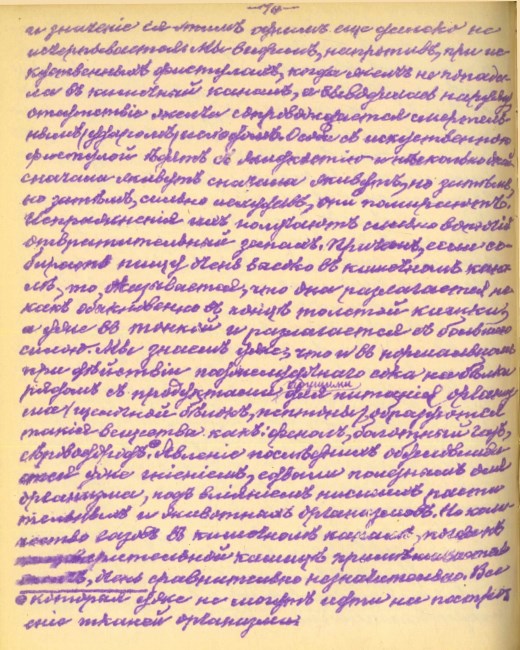 — 70 —
и значеніе ея этимъ однимъ еще далеко не
исчерпывается. Мы видимъ, напротивъ, при ис-
кусственныхъ фистулахъ, когда желчь не попада-
ла въ кишечный каналъ, а выводилась наружу,
отсутствіе желчи сопровождается смертель-
нымъ исходомъ. Особи съ искусственною
фистулой
сначала живутъ сначала живутъ, но затѣмъ,
но затѣмъ, сильно исхудавъ, они помираютъ.
Испражненія ихъ получаютъ сильно вонючій
отвратительный запахъ. Причемъ, если со-
бирать пищу въ кишечномъ кана-
лѣ, то, оказывается, что она разлагается не
какъ обыкновенно въ концѣ толстой кишки,
а уже въ тонкой и разлагается съ большою
силою. Мы знаемъ уже, что и въ нормальномъ
при дѣйствіи поджелудочнаго сока на бѣлки
рядомъ съ продуктами годными для питанія организ-
ма (щелочной бѣлокъ, пептоны) образуются
такія вещества какъ: фенолъ, болотный газъ,
сѣроводородъ. Явленіе послѣднихъ
уже гніеніемъ, едвали полезнымъ для
организма, подъ вліяніемъ низшихъ расти-
тельныхъ и животныхъ организмовъ. Но коли-
чество газовъ въ кишечномъ каналѣ,
кашицѣ
сравнительно незначительно. Все
которыя уже не могутъ идти на построе-
ніе тканей организма.